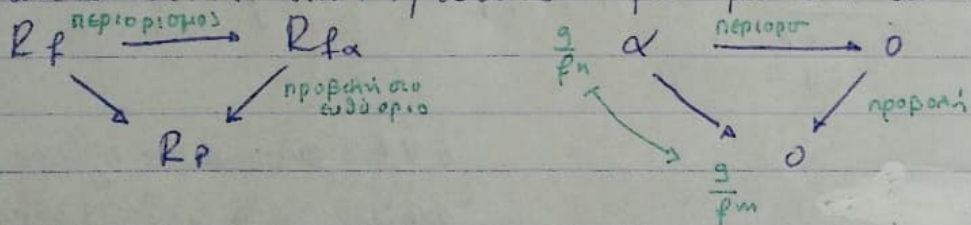 περιορισμος
R_f → R_{fα}
προβολή στο
ευθύ όριο
R_p
g/f^n α περιορισ 0
προβολή
0
g/f^m